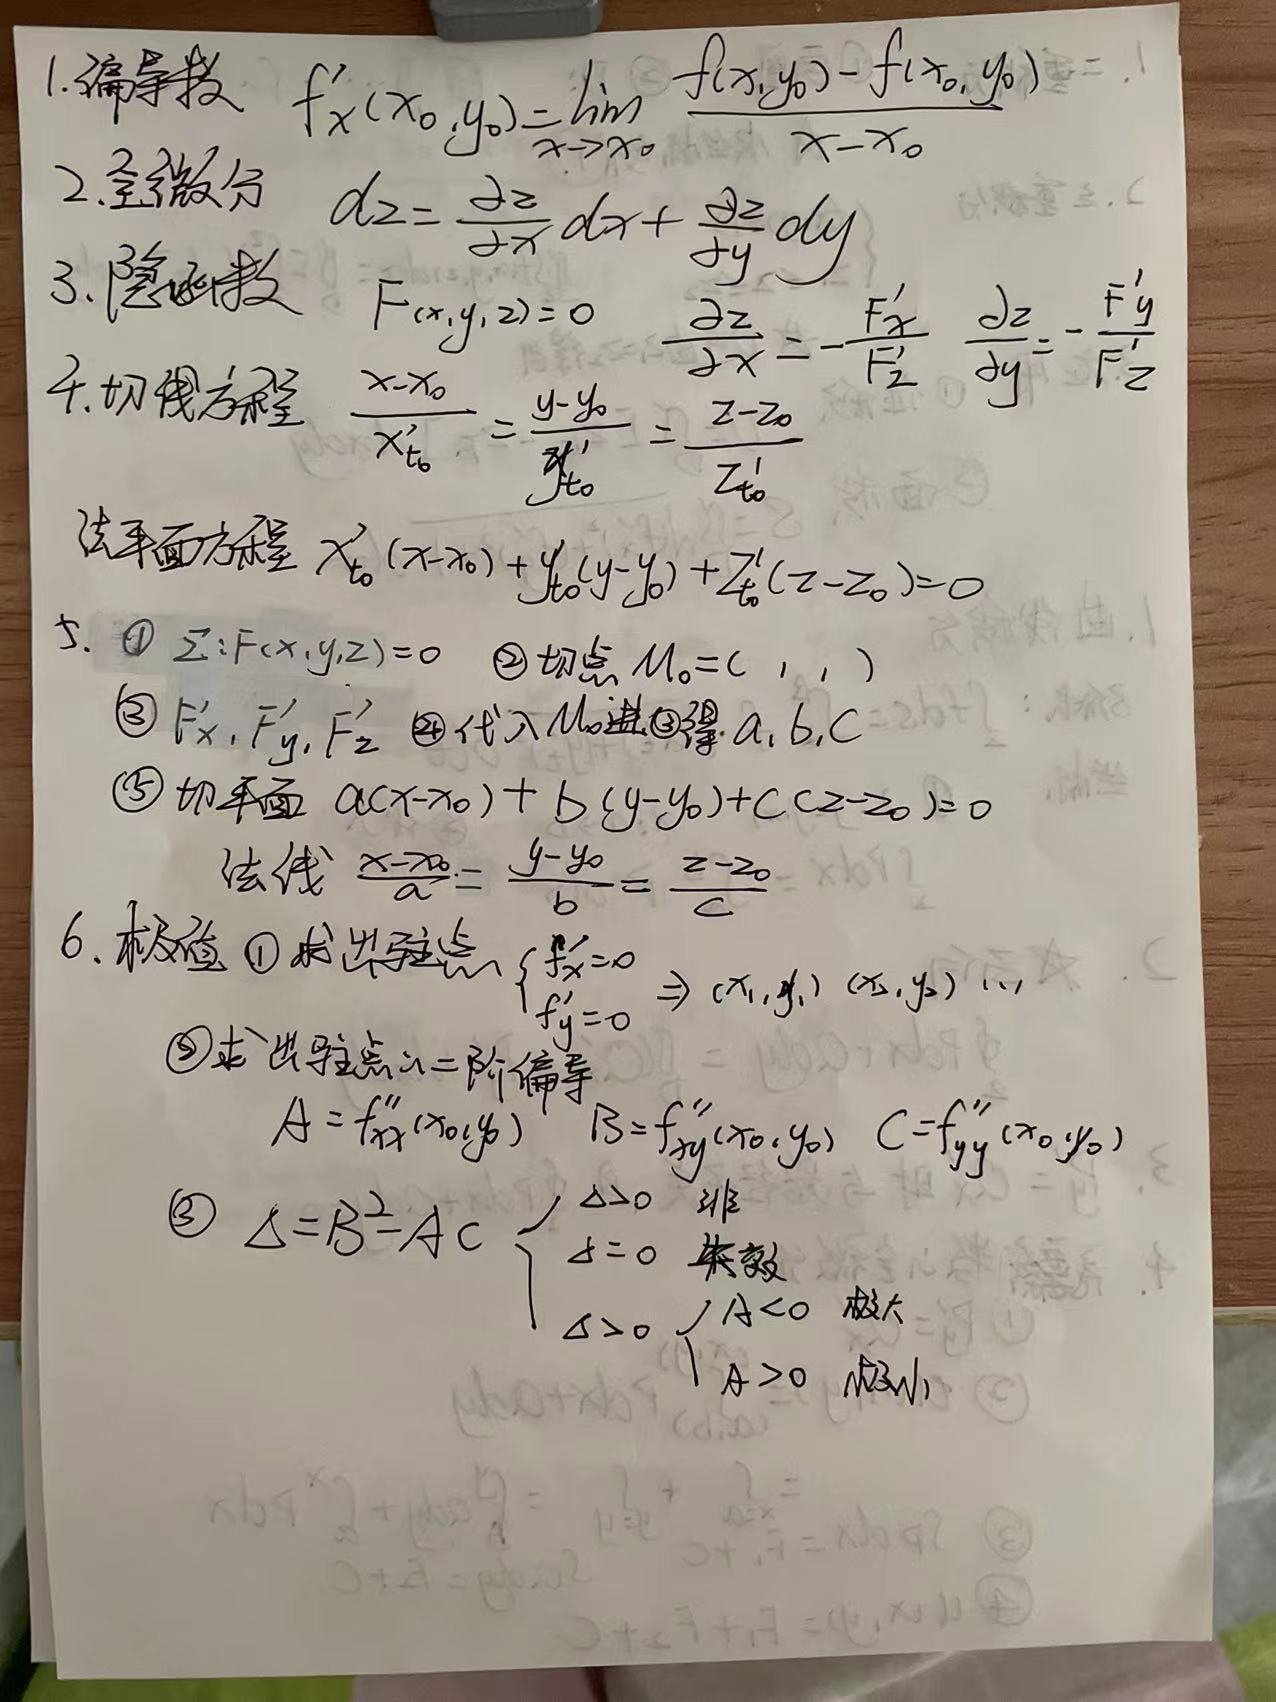 1.偏导数 f'x(x0,y0)=lim x→x0 f(x,y0)-f(x0,y0) / x-x0
2.全微分 dz=∂z/∂x dx+∂z/∂y dy
3.隐函数 F(x,y,z)=0 ∂z/∂x=-F'x/F'z ∂z/∂y=-F'y/F'z
4.切线方程 x-x0/x't0=y-y0/y't0=z-z0/z't0
法平面方程 x't0(x-x0)+y't0(y-y0)+z't0(z-z0)=0
5.①Σ:F(x,y,z)=0 ②切点M0=( , , )
③F'x,F'y,F'z ④代入M0进③得a,b,c
⑤切平面 a(x-x0)+b(y-y0)+c(z-z0)=0
法线 x-x0/a=y-y0/b=z-z0/c
6.极值①求出驻点{f'x=0 f'y=0 ⇒(x1,y1)(x2,y2)...
②求出驻点的二阶偏导
A=f''xx(x0,y0) B=f''xy(x0,y0) C=f''yy(x0,y0)
③Δ=B²-AC
Δ>0 非
Δ=0 失效
Δ>0
A<0 极大
A>0 极小